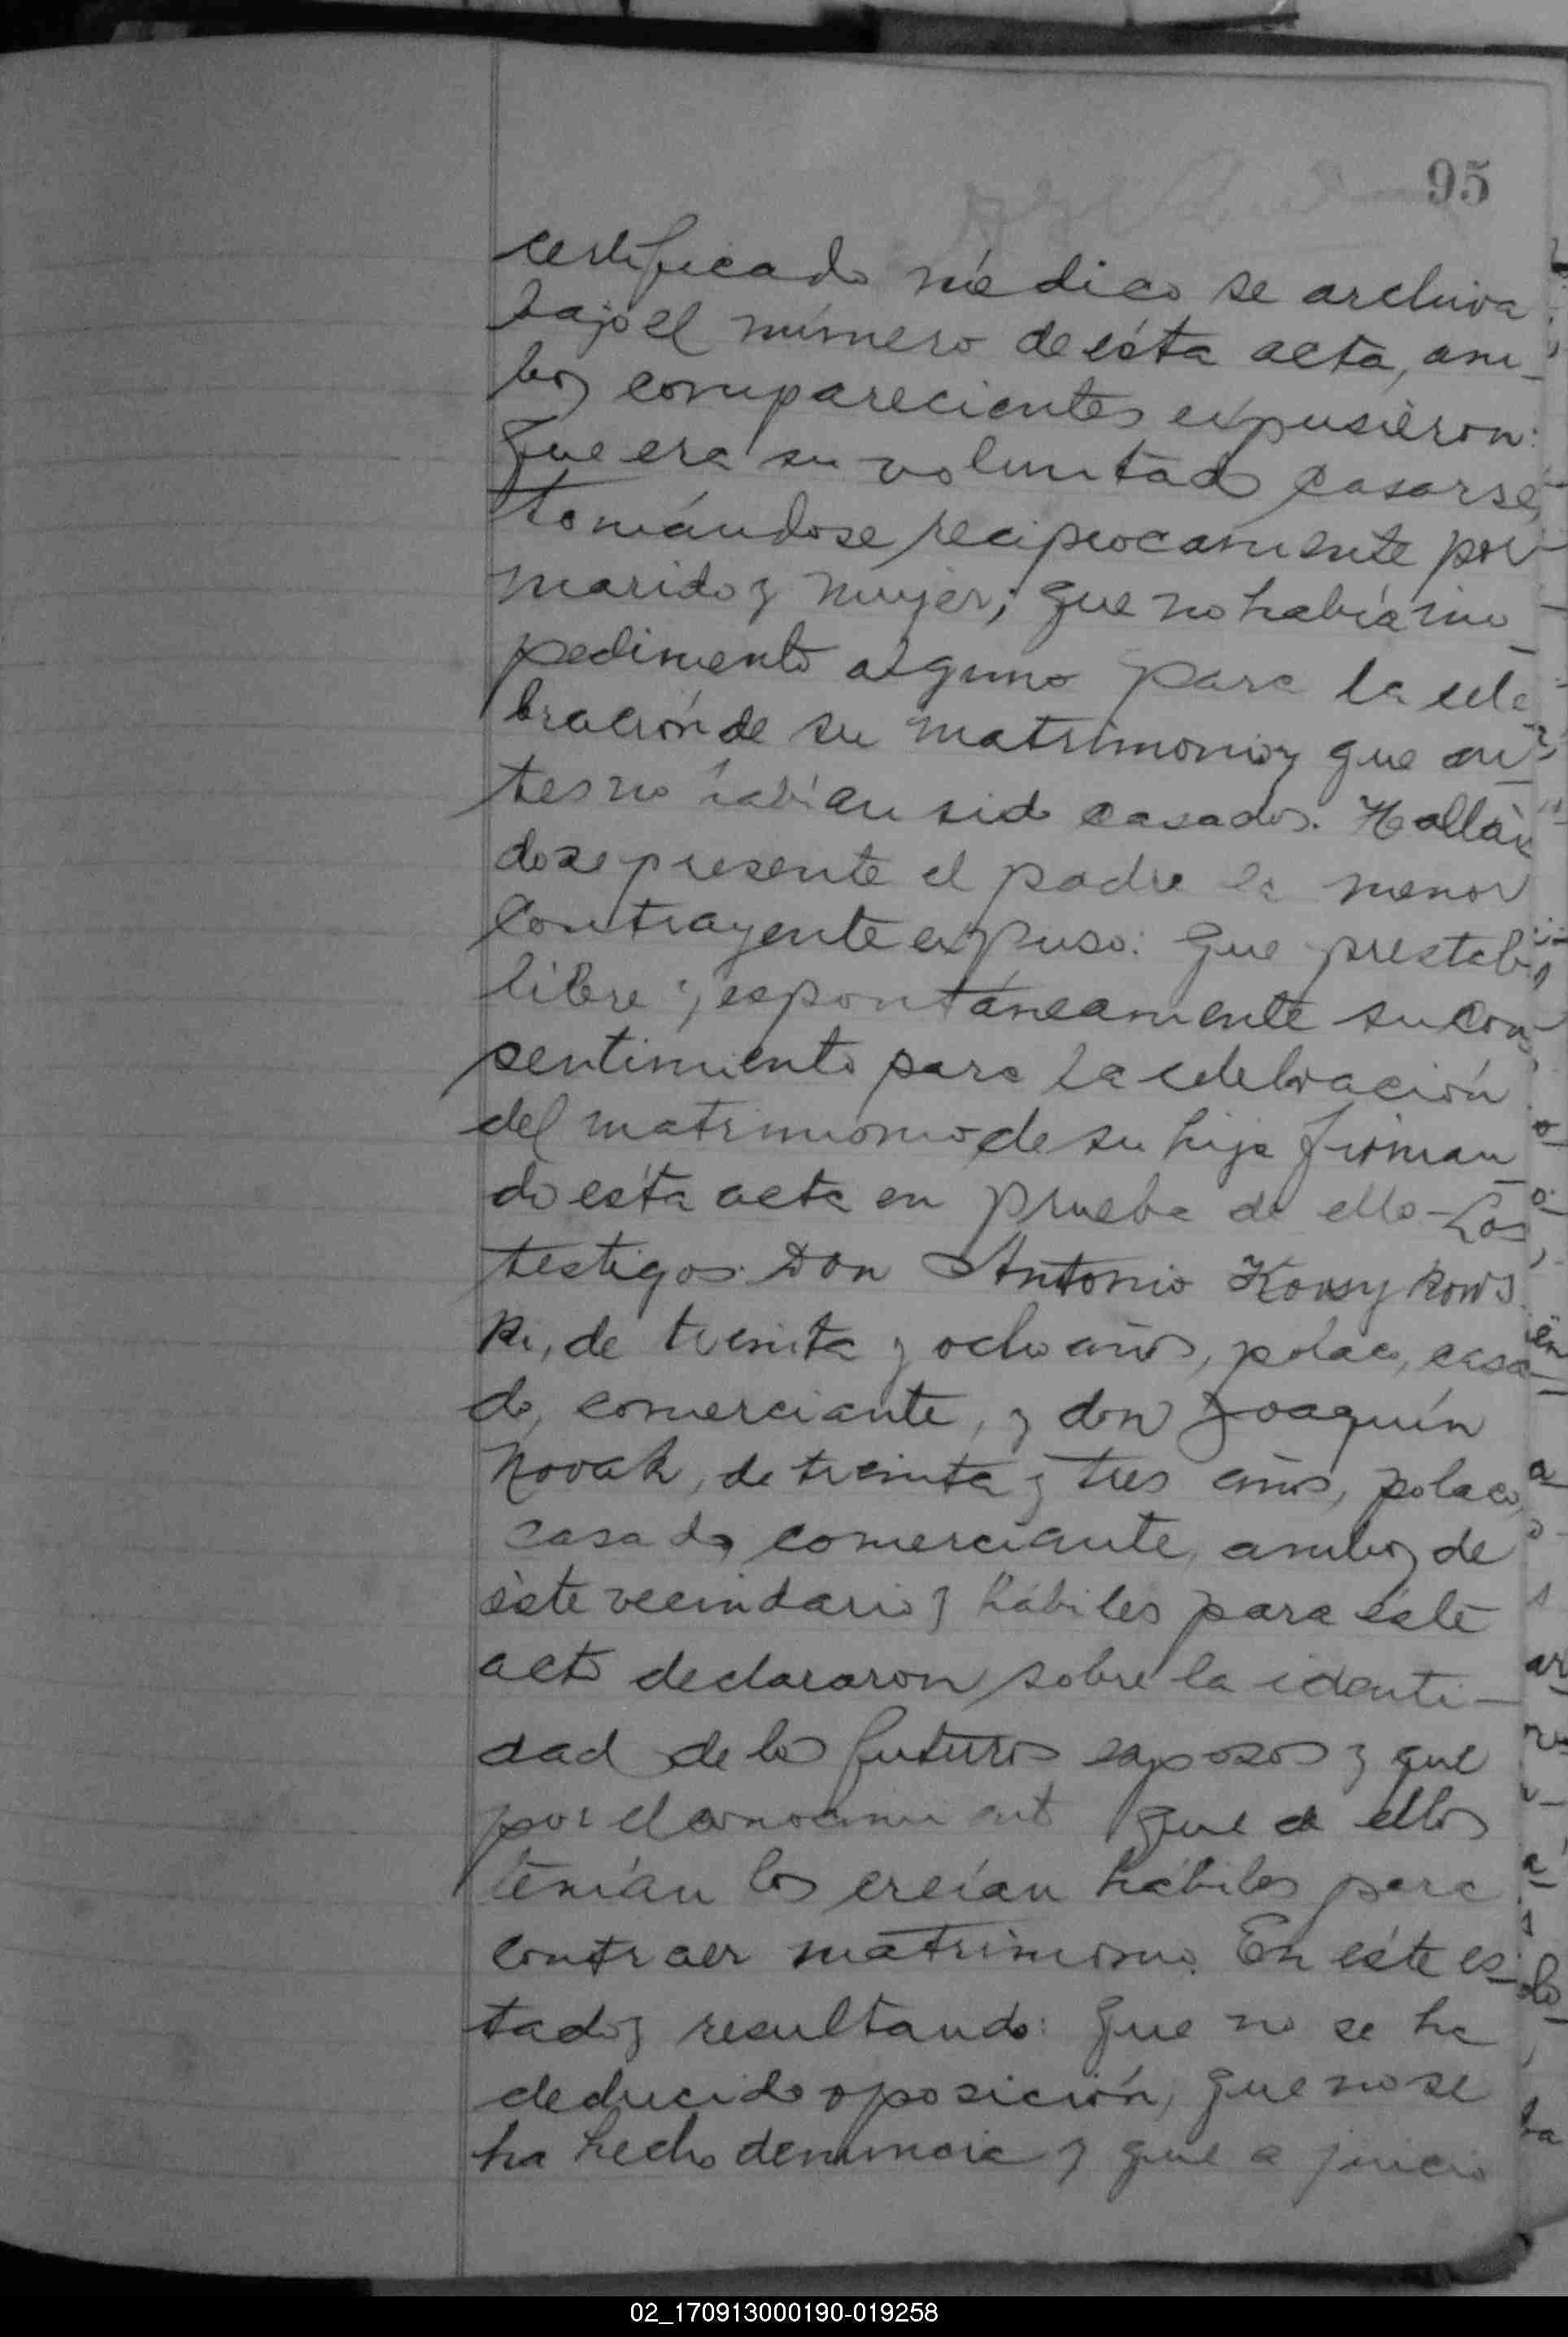 95
certificado médico se archiva
bajo el número de ésta acta, am-
bos comparecientes expusieron:
que era su voluntad casarse,
tomándose reciprocamente por
marido y mujer; que no había im-
pedimento alguno para la cele-
bración de su matrimonio y que an-
tes no habían sido casados. Hallán
dose presente el padre la menor
contrayente expuso: que prestaba
libre y espontáneamente su con-
sentimiento para la celebración
del matrimonio de su hija firman-
do ésta acta en prueba de ello - Los
testigos Don Antonio
ki, de treinta y ocho años, polaco, casa-
do, comerciante, y don Joaquín
Novak, de treinta y tres años, polaco,
casado, comerciante, ambos de
éste vecindario y hábiles para éste
acto declararon sobre la identi-
dad de los futuros esposos y que
por el conocimient que de ellos
tenían los creían hábiles para
contraer matrimonio. En éste es-
tado y resultando: que no se ha
deducido oposición, que no se
ha hecho denuncia y que a juicio
02_170913000190-019258